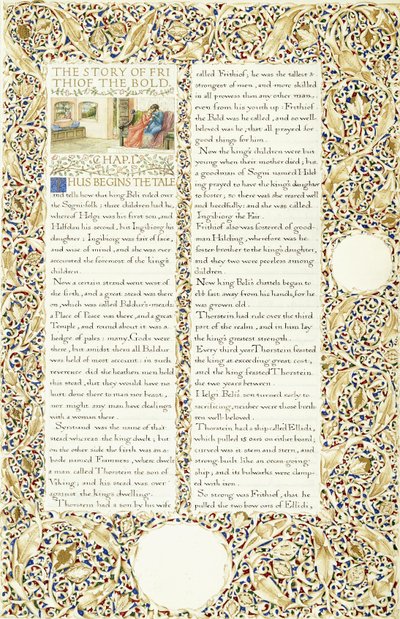 THE STORY OF FRI
THIOF THE BOLD.
CHAP. I.
THUS BEGINS THE TALE
and tells how that king Beli ruled over
the Sogni-folk; three children had he,
whereof Helgi was his first son, and
Halfdan his second, but Ingibiorg his
daughter. Ingibiorg was fair of face,
and wise of mind, and she was ever
accounted the foremost of the king's
children.
Now a certain strand went west of
the firth, and a great stead was there
on, which was called Baldur's-meads;
a Place of Peace was there, and a great
Temple, and round about it was a
hedge of pales: many Gods were
there, but amidst them all Baldur
was held of most account: in such
reverence did the heathen men hold
this stead, that they would have no
hurt done there to man nor beast;
nor might any man have dealings
with a woman there.
Seostrand was the name of that
stead whereas the king dwelt; but
on the other side the firth was an a-
bode named Framness, where dwelt
a man called Thorstein the son of
Viking; and his stead was over
against the king's dwelling.
Thorstein had a son by his wife
called Frithiof; he was the tallest &
strongest of men, and more skilled
in all prowess than any other man,
even from his youth up: Frithiof
the Bold was he called, and so well-
beloved was he, that all prayed for
good things for him.
Now the king's children were but
young when their mother died; but
a goodman of Sogni named Hild
ing prayed to have the king's daughter
to foster; so there was she reared well
and heedfully: and she was called
Ingibiorg the Fair.
Frithiof also was fostered of good-
man Hilding, wherefore was he
foster-brother to the king's daughter,
and they two were peerless among
children.
Now king Beli's chattels began to
ebb fast away from his hands, for he
was grown old.
Thorstein had rule over the third
part of the realm, and in him lay
the king's greatest strength.
Every third year Thorstein feasted
the king at exceeding great cost;
and the king feasted Thorstein
the two years between.
Helgi Beli's son turned early to
sacrificing, neither were those breth
ren well-beloved.
Thorstein had a ship called Ellidi,
which pulled 15 oars on either board;
curved was it stem and stern, and
strong-built like an ocean going
ship; and its bulwarks were clamp-
ed with iron.
So strong was Frithiof, that he
pulled the two bow oars of Ellidi,